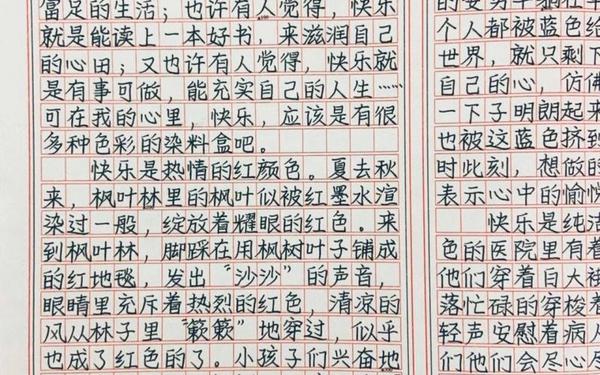 富足的生活；也许有人觉得，快乐
就是能读上一本好书，来滋润自己
的心田；又也许有人觉得，快乐就
是有事可做，能充实自己的人生……
可在我的心里，快乐，应该是有很
多种色彩的染料盒吧。
快乐是热情的红颜色。夏去秋
来，枫叶林里的枫叶似被红墨水渲
染过一般，绽放着耀眼的红色。来
到枫叶林，脚踩在用枫树叶子铺成
的红地毯，发出“沙沙”的声音，
眼睛里充斥着热烈的红色，清凉的
风从林子里“簌簌”地穿过，似乎
也成了红色的了。小孩子们兴奋地
个人都被蓝色给
世界，就只剩下
自己的心，仿佛
一下子明朗起来
也被这蓝色挤到
时此刻，想做的
表示心中的愉悦
快乐是纯洁
色的医院里有着
他们穿着白大褂
落忙碌的穿梭着
轻声安慰着病人
们他们会尽心尽